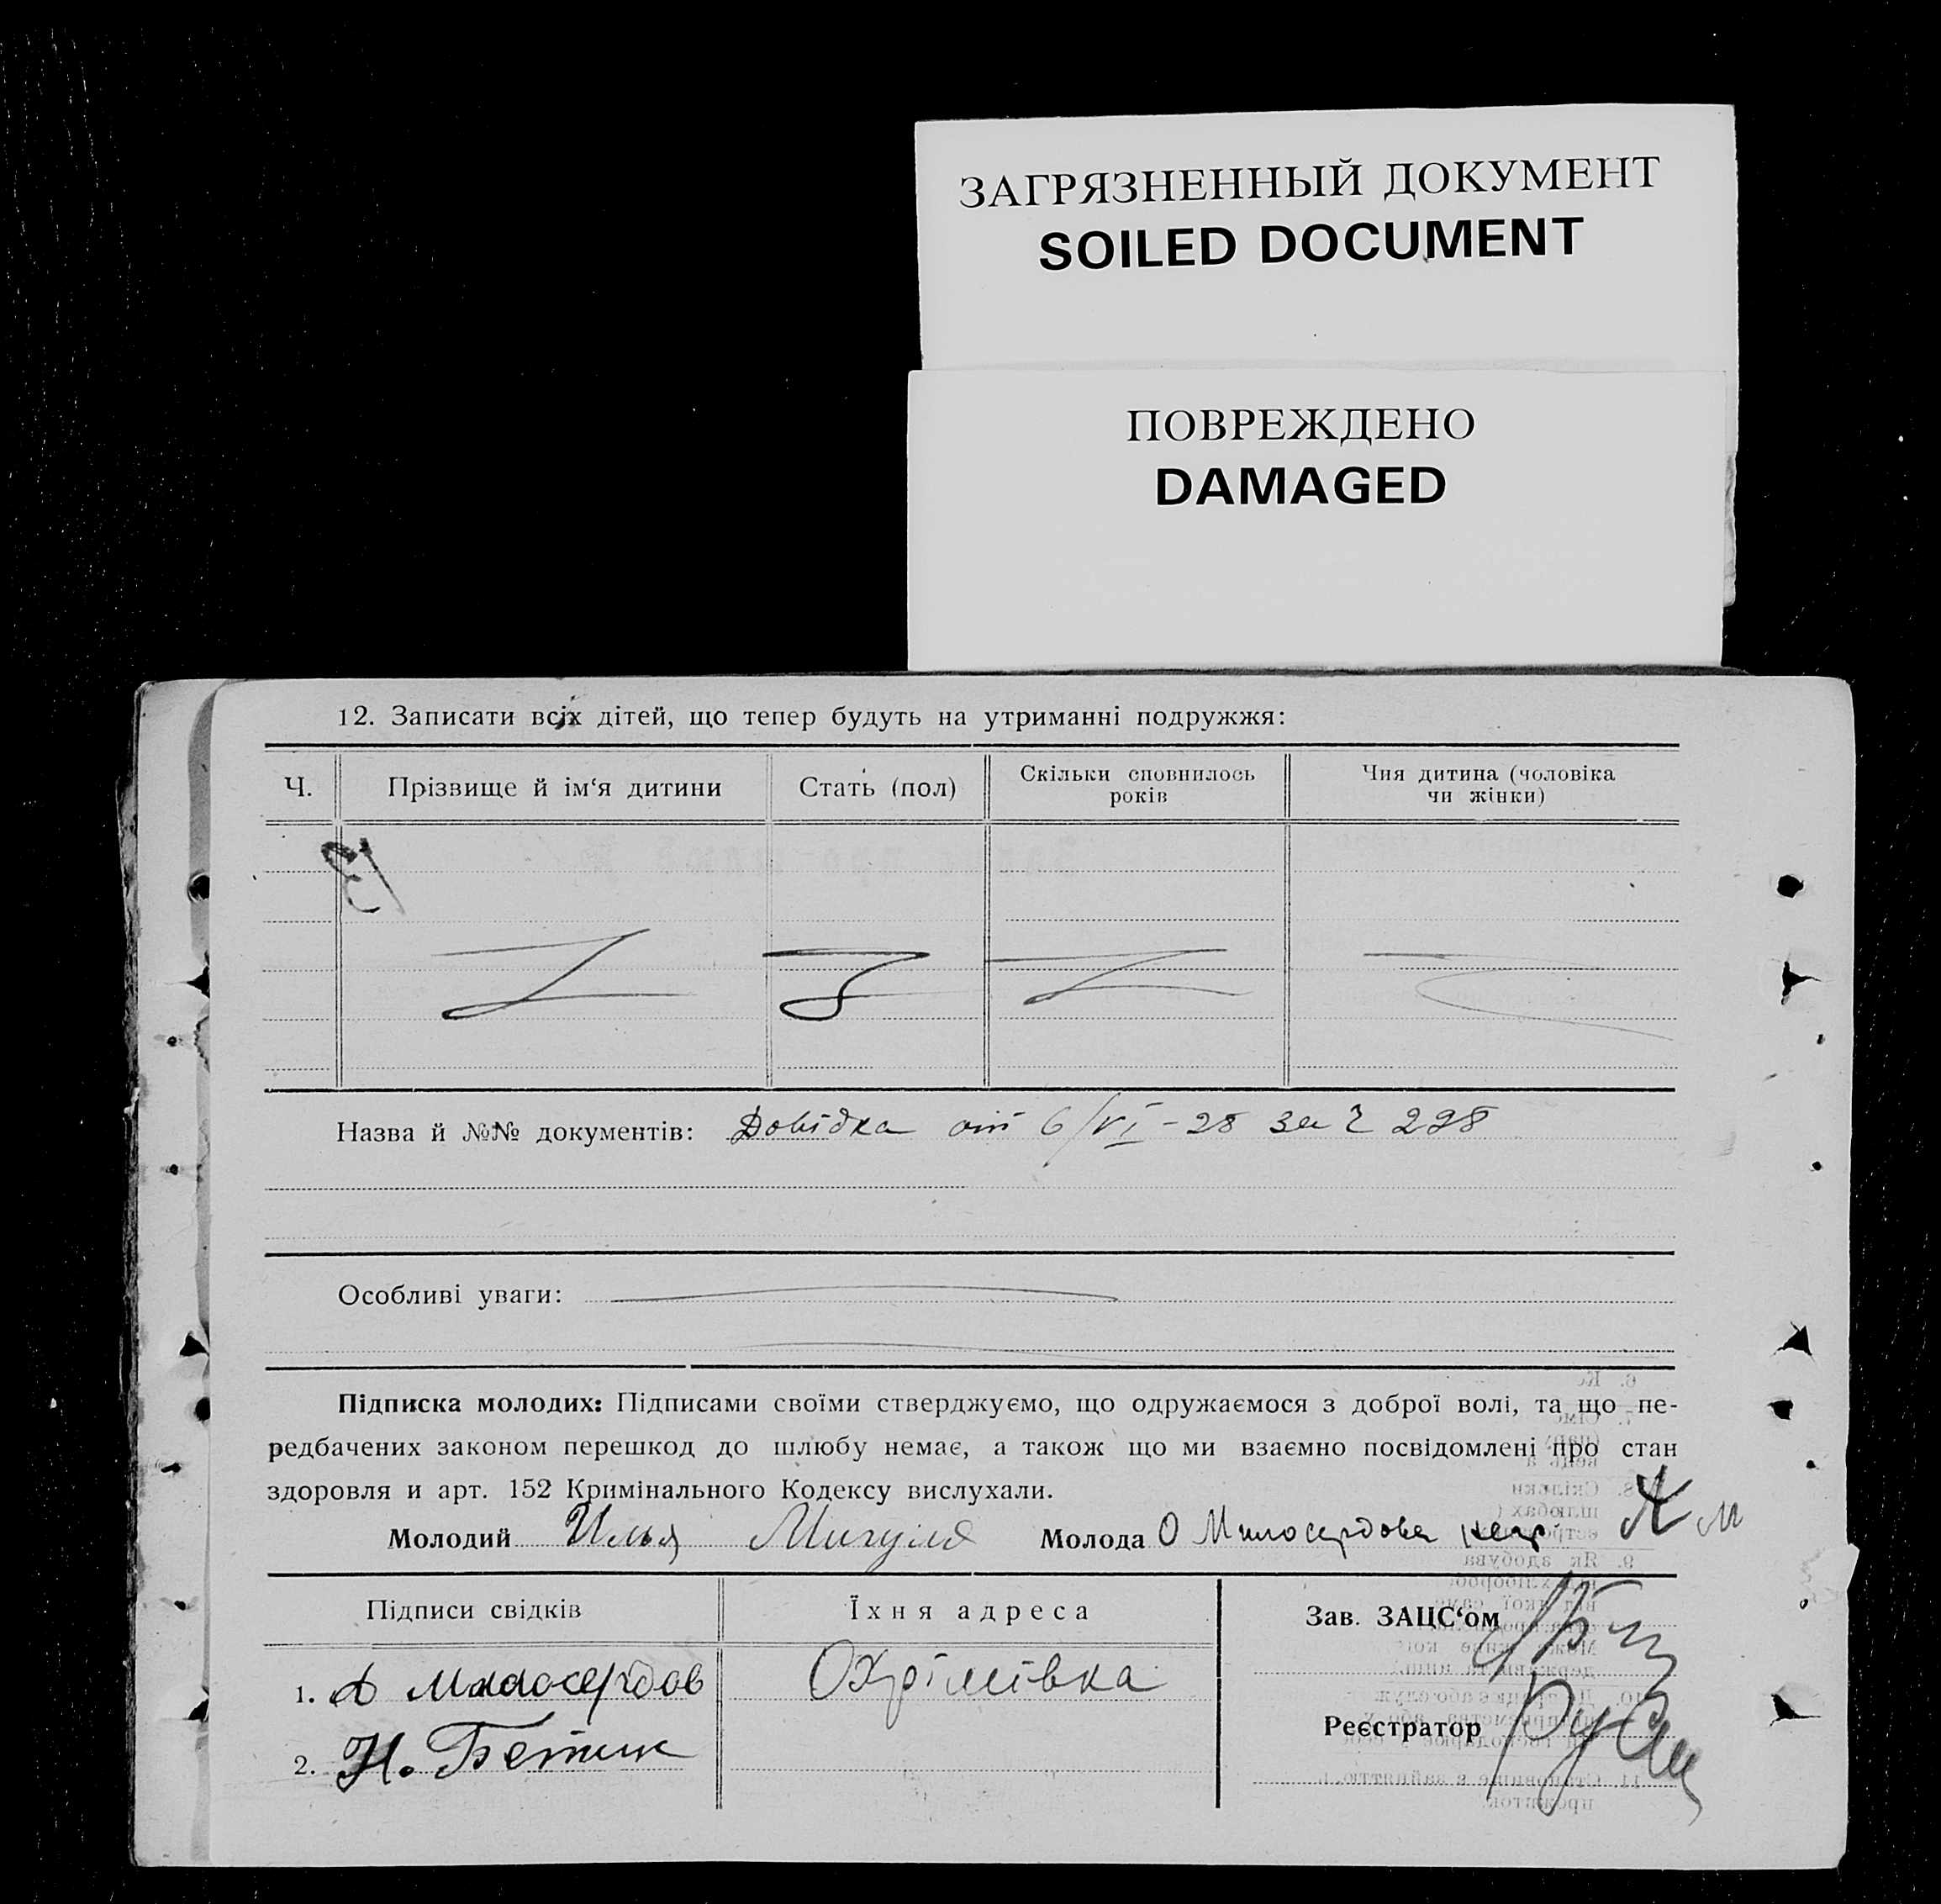 ЗАГРЯЗНЕННЫЙ ДОКУМЕНТ
SOILED DOCUMENT
ПОВРЕЖДЕНО
DAMAGED
12. Записати всіх дітей, що тепер будуть на утриманні подружжя:
Ч. Прізвище й ім‘я дитини Стать (пол) Скільки сповнилось років Чия дитина (чоловіка чи жінки)
Назва й №№ документів: Довідка від 6/VI-28 за ч 228
Особливі уваги:
Підписка молодих: Підписами своїми стверджуємо, що одружаємося з доброї волі, та що пе-
редбачених законом перешкод до шлюбу немає, а також що ми взаємно посвідомлені про стан
здоровля и арт. 152 Кримінального Кодексу вислухали.
Молодий Илья Мигуля Молода О Милосердова
Підписи свідків Їхня адреса Зав. ЗАЦС‘ом
1. Милосердов Охрімівка
Реєстратор
2. Н.